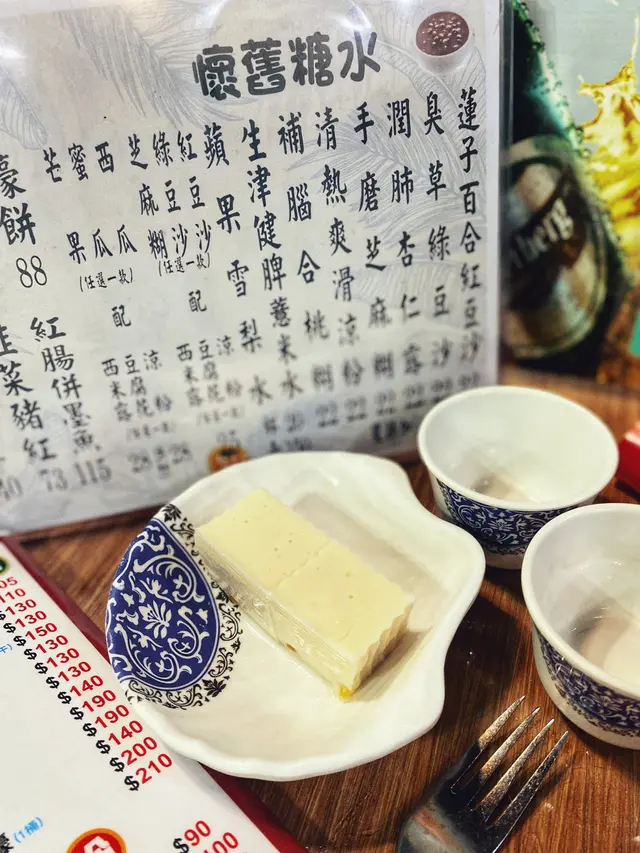 懷舊糖水
蓮子百合紅豆沙
臭草綠豆沙
潤肺杏仁露 22
手磨芝麻糊 22
清熱爽滑涼粉 22
補腦合桃糊 22
生津健脾薏米水 20
蘋果雪梨水
紅豆沙
綠豆沙
芝麻糊
(任選一款)
配
涼粉
豆腐花
西米露
28
西瓜
蜜瓜
芒果
(任選一款)
配
涼粉
豆腐花
西米露
28
蠔餅
88
紅腸併墨魚
115
菜豬紅
73
$130
$130
$150
$130
$130
$130
$140
$190
$190
$140
$200
$210
(1桶)
$90